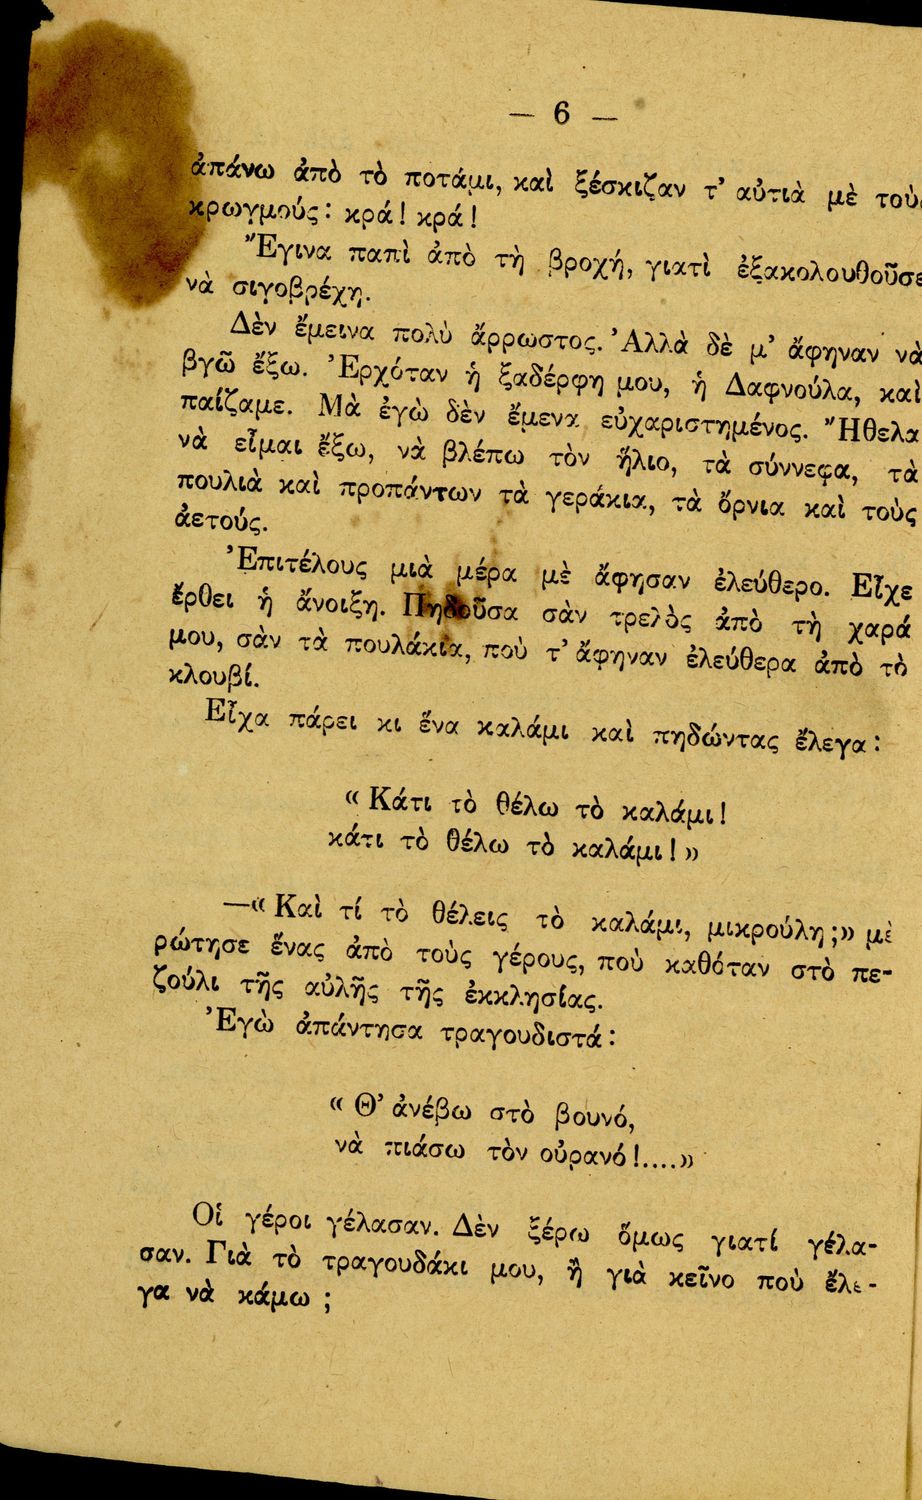 — 6 —
ἀπάνω ἀπὸ τὸ ποτάμι, καὶ ξέσκιζαν τ’ αὐτιὰ μὲ τοὺς
κρωγμούς: κρά! κρά!
Ἔγινα παπὶ ἀπὸ τὴ βροχή, γιατὶ ἐξακολουθοῦσε
νὰ σιγοβρέχη.
Δὲν ἔμεινα πολὺ ἄρρωστος. Ἀλλὰ δὲ μ’ ἄφηναν νὰ
βγῶ ἔξω. Ἐρχόταν ἡ ξαδέρφη μου, ἡ Δαφνούλα, καὶ
παίζαμε. Μὰ ἐγὼ δὲν ἔμενα εὐχαριστημένος. Ἤθελα
νὰ εἶμαι ἔξω, νὰ βλέπω τὸν ἥλιο, τὰ σύννεφα, τὰ
πουλιὰ καὶ προπάντων τὰ γεράκια, τὰ ὄρνια καὶ τοὺς
ἀετούς.
Ἐπιτέλους μιὰ μέρα μὲ ἄφησαν ἐλεύθερο. Εἶχε
ἔρθει ἡ ἄνοιξη. Πηδοῦσα σὰν τρελὸς ἀπὸ τὴ χαρά
μου, σὰν τὰ πουλάκια, ποὺ τ’ ἄφηναν ἐλεύθερα ἀπὸ τὸ
κλουβί.
Εἶχα πάρει κι ἕνα καλάμι καὶ πηδώντας ἔλεγα:
« Κάτι τὸ θέλω τὸ καλάμι!
κάτι τὸ θέλω τὸ καλάμι! »
—« Καὶ τί τὸ θέλεις τὸ καλάμι, μικρούλη;» μὲ
ρώτησε ἕνας ἀπὸ τοὺς γέρους, ποὺ καθόταν στὸ πε-
ζούλι τῆς αὐλῆς τῆς ἐκκλησίας.
Ἐγὼ ἀπάντησα τραγουδιστά:
« Θ’ ἀνέβω στὸ βουνό,
νὰ πιάσω τὸν οὐρανό!....»
Οἱ γέροι γέλασαν. Δὲν ξέρω ὅμως γιατί γέλα-
σαν. Γιὰ τὸ τραγουδάκι μου, ἢ γιὰ κεῖνο ποὺ ἔλε-
γα νὰ κάμω ;